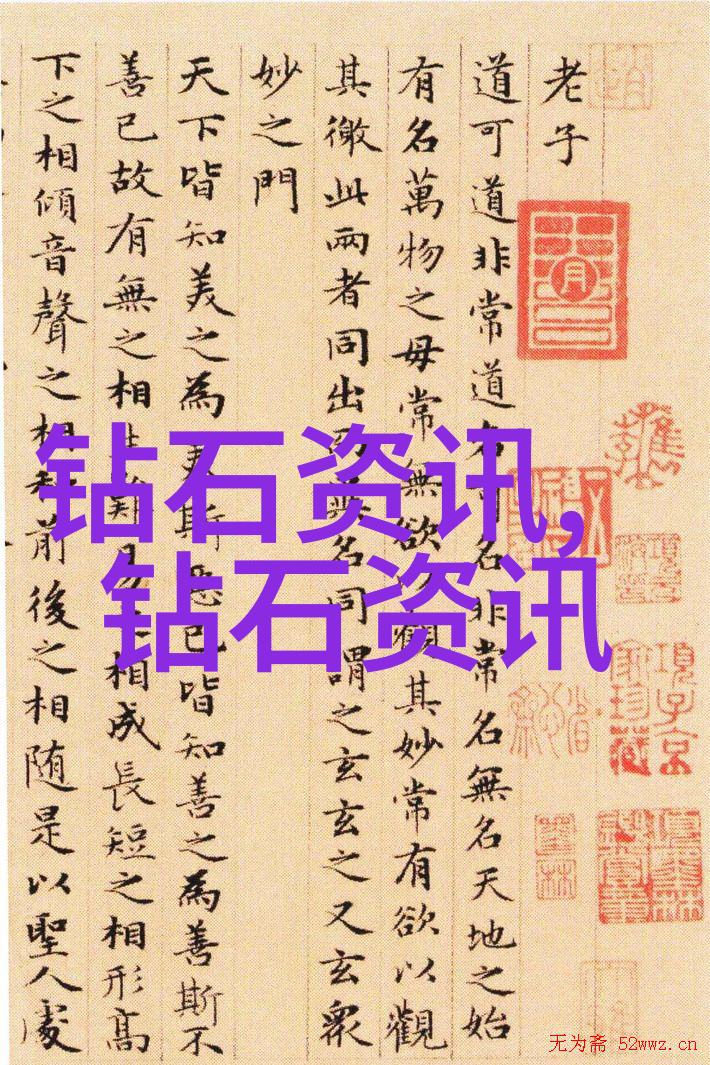 老子
道可道非常道名可名非常名無名天地之始
有名萬物之母常無欲以觀其妙常有欲以觀
其徼此兩者同出而異名同謂之玄玄之又玄衆
妙之門
天下皆知美之為美斯惡已皆知善之為善斯不
善已故有無之相生難易之相成長短之相形高
下之相傾音聲之相和前後之相随是以聖人處
钻石资讯,
钻石资讯
項子京
家珍藏
无为斋 52wwz.cn